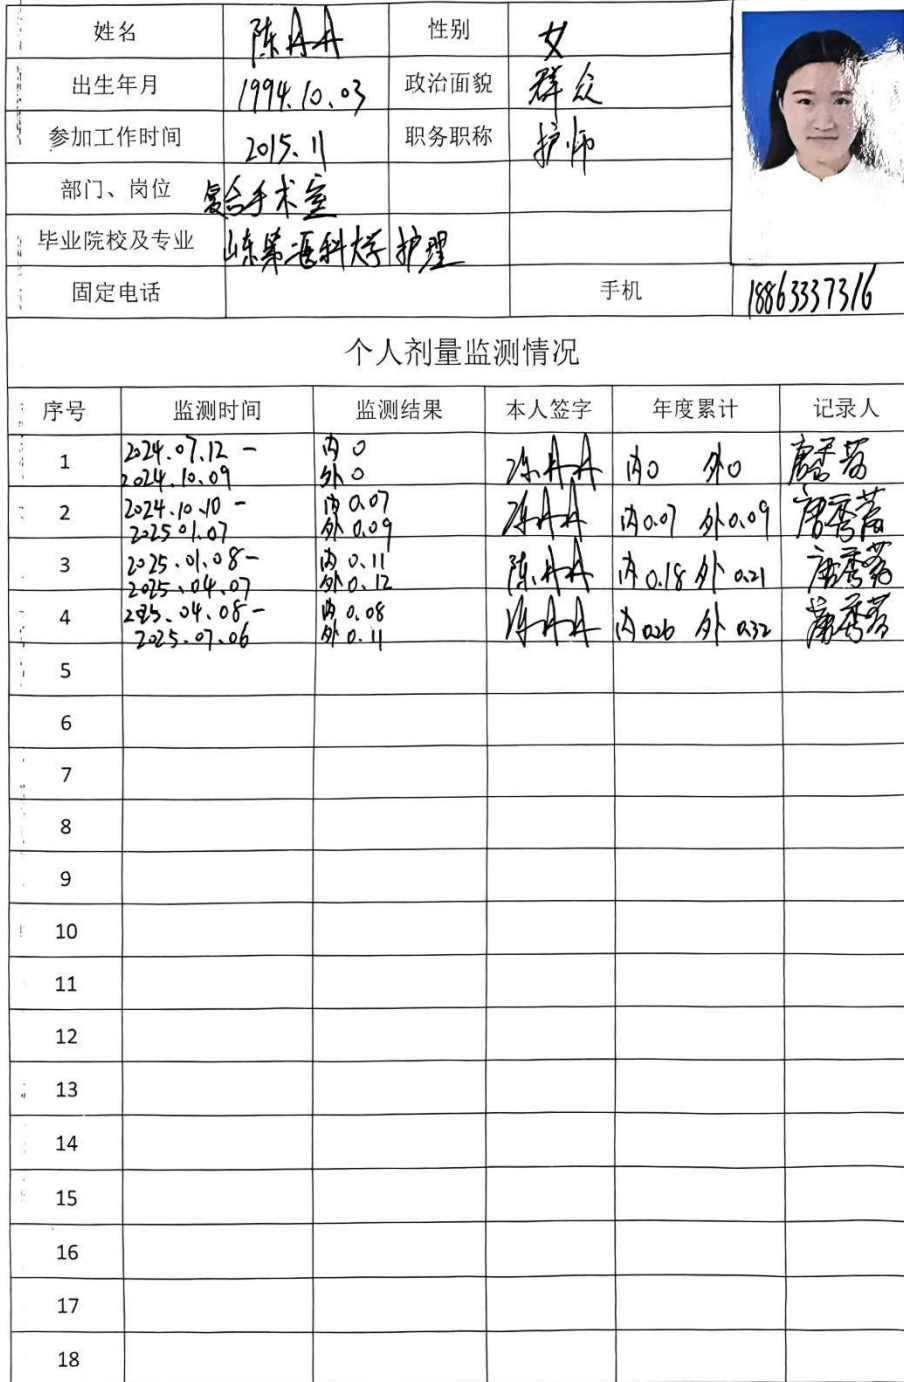 姓名 陈丹丹 性别 女
出生年月 1994.10.03 政治面貌 群众
参加工作时间 2015.11 职务职称 护师
部门、岗位 复合手术室
毕业院校及专业 山东第一医科大学 护理
固定电话 手机 18863337316
个人剂量监测情况
序号 监测时间 监测结果 本人签字 年度累计 记录人
1 2024.07.12 - 2024.10.09 内 0 外 0 陈丹丹 内0 外0
2 2024.10.10 - 2025.01.07 内 0.07 外 0.09 陈丹丹 内0.07 外0.09
3 2025.01.08 - 2025.04.07 内 0.11 外 0.12 陈丹丹 内0.18 外0.21
4 2025.04.08 - 2025.07.06 内 0.08 外 0.11 陈丹丹 内0.26 外0.32
5
6
7
8
9
10
11
12
13
14
15
16
17
18